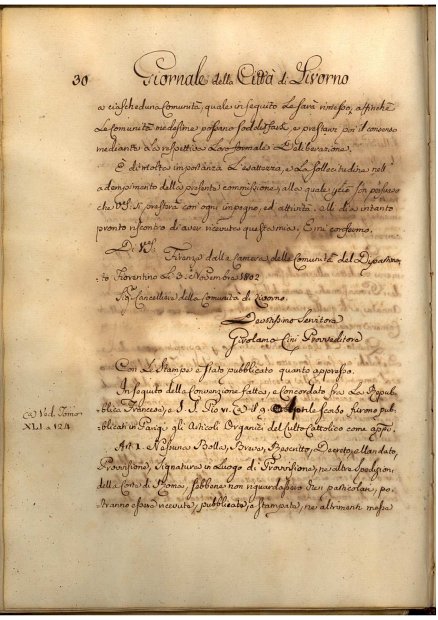 30 Giornale della Città di Livorno
a ciascheduna Comunità, quale in seguito le sarà rimesso, affinchè
le Comunità medesime possano soddisfarlo, e prestare poi il consenso
mediante la respettiva loro formale Deliberazione.
È di molta importanza l'esattezza, e la sollecitudine nell'
adempimento della presente commissione, alla quale son persuaso
che V.S. presterà con ogni impegno, ed attività. ed intanto
pronto riscontro di aver ricevuta questa mia. E mi confermo.
Di VS.
Firenze dalla Camera delle Comunità del Dipartimen
to Fiorentino Li 3 Novembre 1802
Sig. Cancelliere della Comunità di Livorno.
Devotissimo Servitore
Girolamo Cini Provveditore
Con le Stampe è stato pubblicato quanto appresso.
In seguito della Convenzione fatta, e concordata fra La Repub
blica Francese, e S. S. Pio VII. il 9. Aprile scorso furono pub
(a) Ved. Tomo
blicati in Parigi gli Articoli Organici del Culto Cattolico come appo.
XLI a 124
Art. 1. Nessuna Bolla, Breve, Rescritto, Decreto, Mandato,
Provvisione, Signatura in Luogo di Provvisione, ne altre spedizioni
della Corte di Roma, sebbene non riguardassero che i particolari, po
tranno essere ricevute, pubblicate, e stampate, ne altrimenti messe